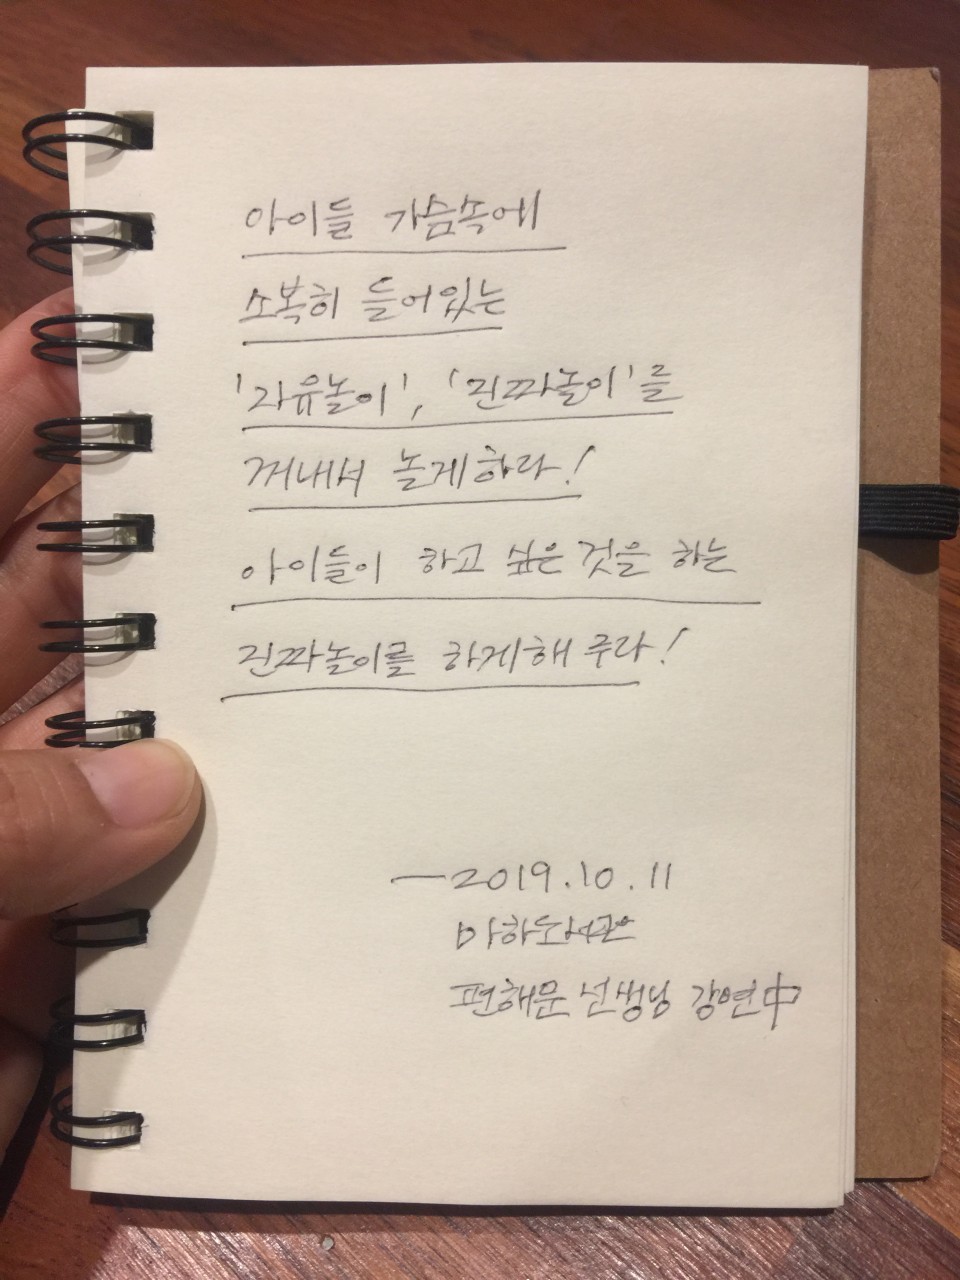 아이들 가슴속에
소복히 들어있는
'자유놀이', '진짜놀이'를
꺼내서 놀게하라!
아이들이 하고 싶은 것을 하는
진짜놀이를 하게해 주라!
—2019.10.11
마하도서관
편해문 선생님 강연中